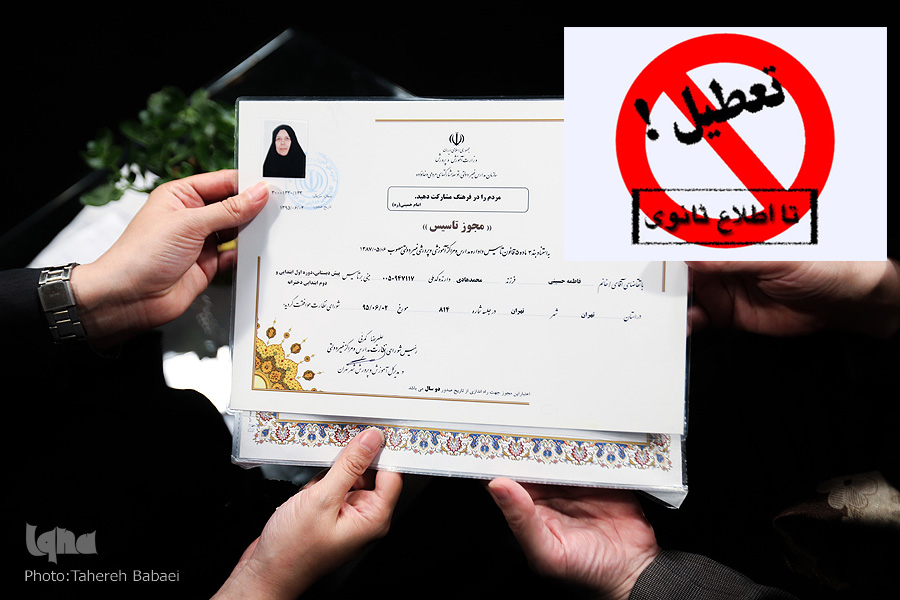 تعطیل!
تا اطلاع ثانوی
جمهوری اسلامی ایران
وزارت آموزش و پرورش
سازمان مدارس غیردولتی و توسعه مشارکتهای مردمی و خانواده
مردم را در فرهنگ مشارکت دهید.
امام خمینی(ره)
(( مجوز تاسیس ))
به استناد بند ۲ ماده ۵ قانون تاسیس و اداره مدارس و مراکز آموزشی و پرورشی غیردولتی مصوب ۱۳۸۷/۰۵/۰۸
با تقاضای آقای / خانم فاطمه حسینی فرزند محمدهادی دارنده کد ملی ۰۰۵۰۹۴۷۱۱۷ مبنی بر تاسیس پیش دبستانی،دوره اول ابتدایی و دوم ابتدایی دخترانه
در استان تهران شهر تهران در جلسه شماره ۸۱۴ مورخ ۹۵/۰۶/۰۲ شورای نظارت موافقت گردید.
علیرضا
رئیس شورای نظارت مدارس و مراکز غیردولتی
و مدیرکل آموزش و پرورش شهر تهران
اعتبار این مجوز جهت راه اندازی از تاریخ صدور دو سال می باشد.
iqna
Photo:Tahereh Babaei